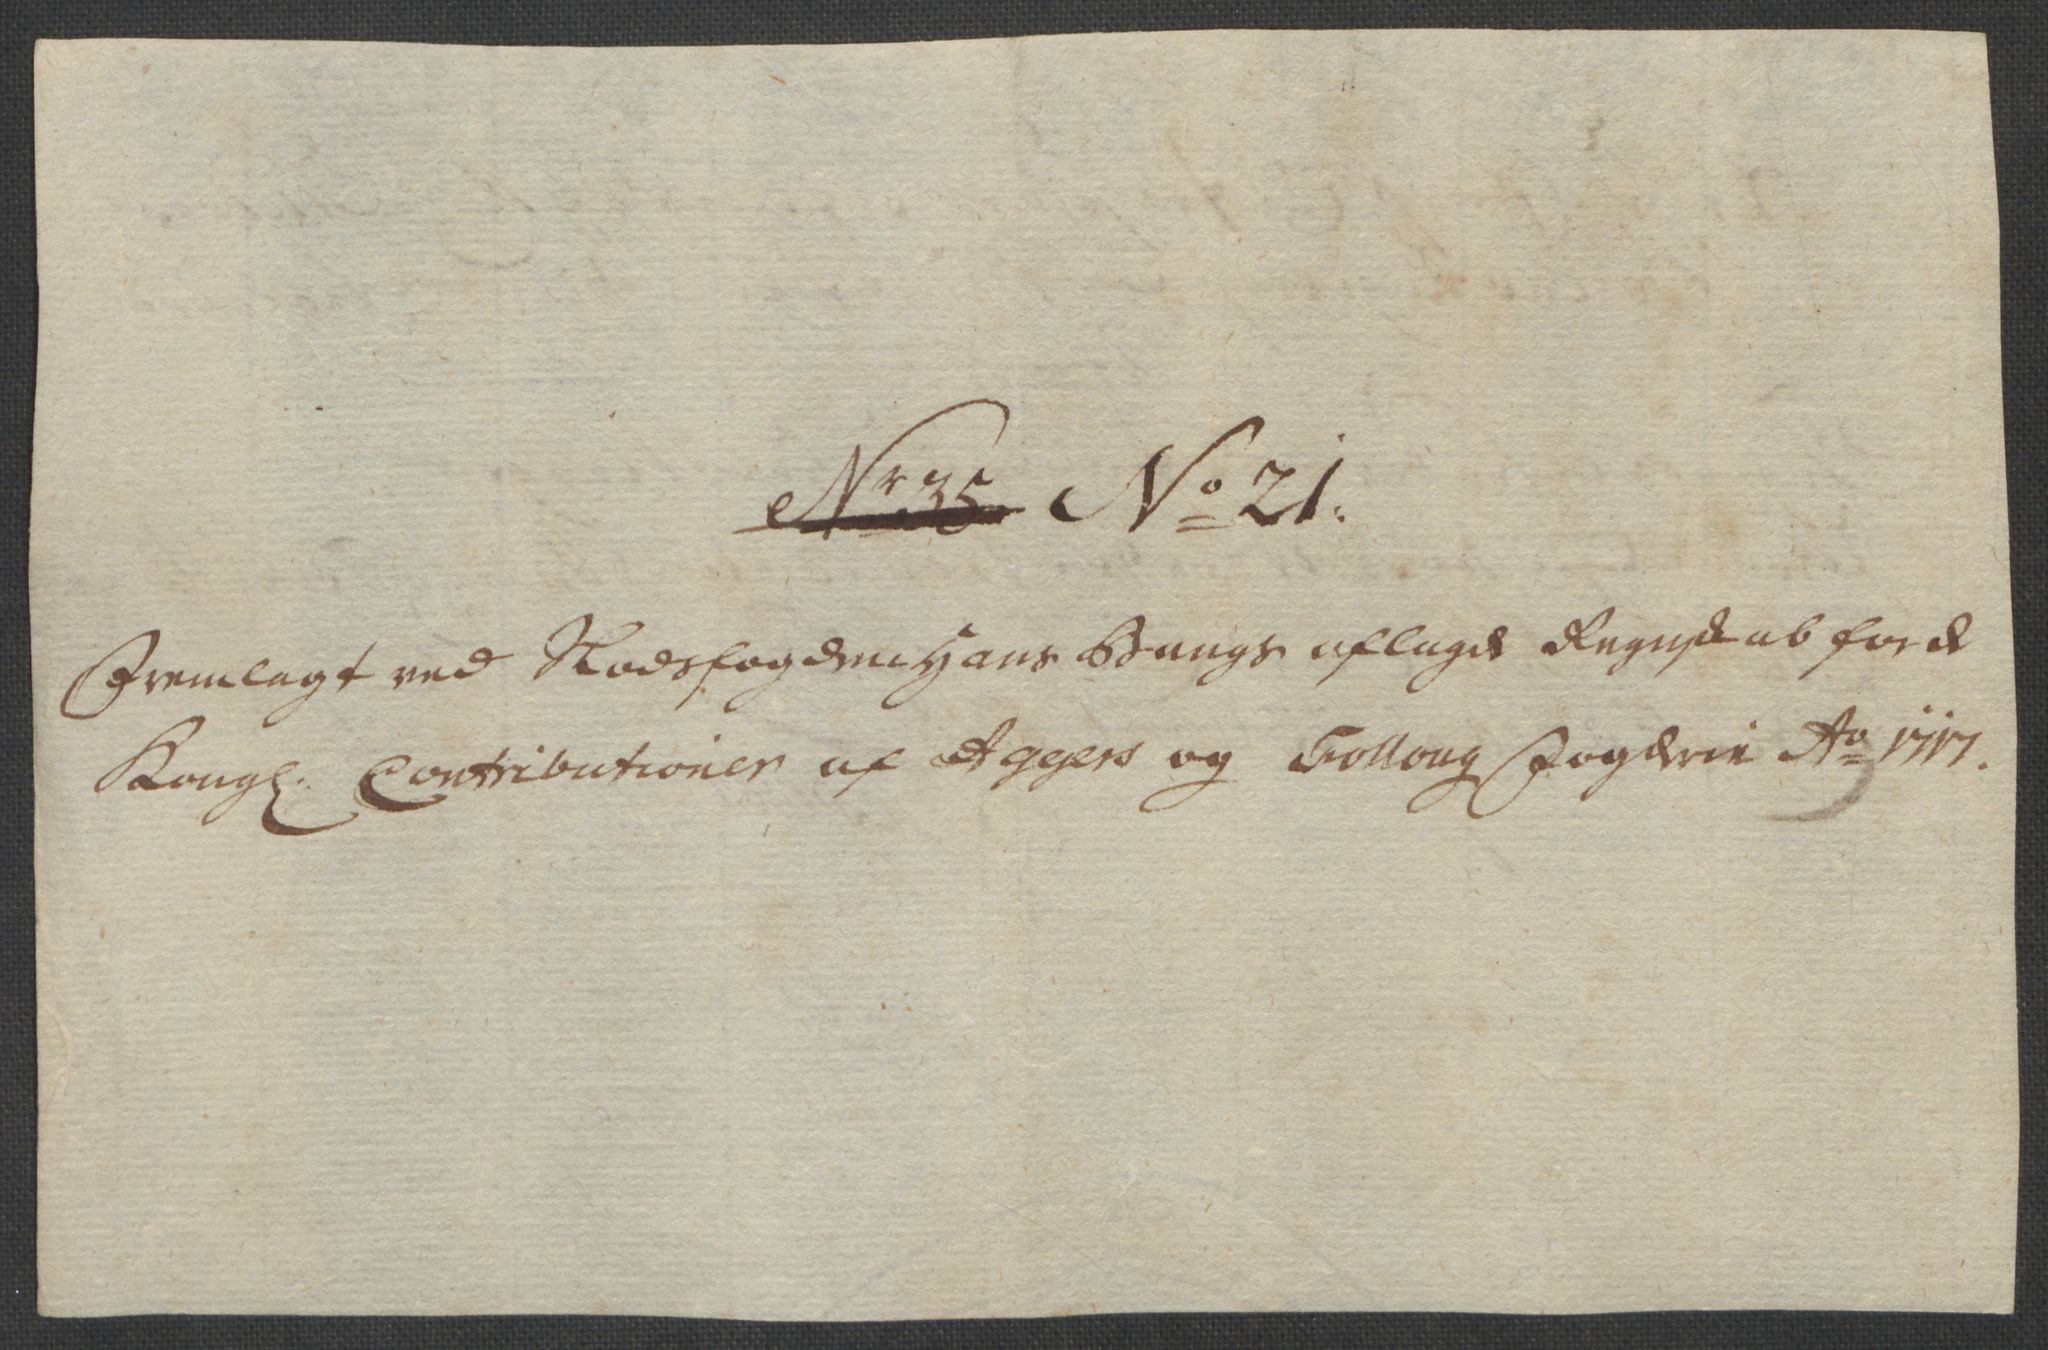 Nr 35 No 21.
Fremlagt ved Hans Bangs aflagde Regnskab for de
Kongl. Contributioner af Aggers og Folloug Fogderie Ao 1717.